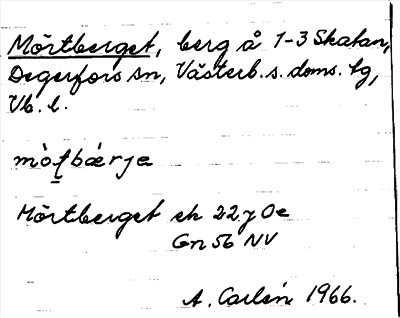 Mörtberget, berg å 1-3 Skatan,
Degerfors sn, Västerb. s. doms. tg,
Vb. l.
mò̱tbærje
Mörtberget ek 22 J 0e
Gn 56 NV
A. Carlén 1966.